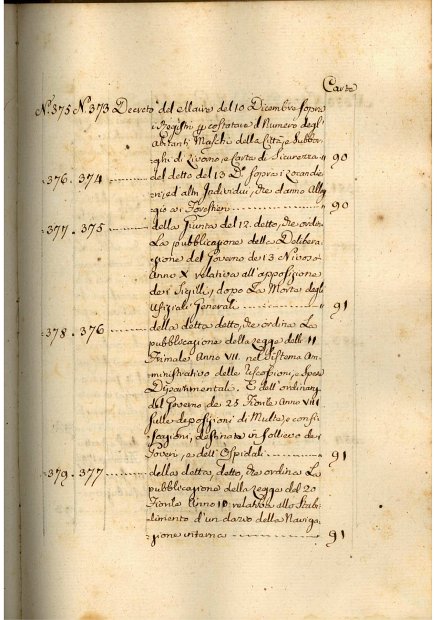 Carte
N.º 375 N.º 373 Decreto del Maire del 10 Dicembre sopra
i Registri p costatare il Numero degl'
Abitanti Maschi della Città, e Subbor-
ghi di Livorno, e Carta di Sicurezza " 90
376. 374 del detto del 13 Dº sopra i Locandie
ri, ed altri Individui, che danno Allog
gio ai Forestieri " 90
377. 375 della Giunta del 12. detto, che ordina
La pubblicazione della Delibera-
zione del Governo de 13 Nivoso
Anno X relativa all'apposizione
dei Sigilli, dopo La Morte degl'
Ufiziali Generali " 91
378. 376 della detta detto, che ordina La
pubblicazione della Legge delli 11
Frimale Anno VII. nel Sistema Am-
ministrativo delle riscossioni, e Spese
Dipartimentali. E dell'ordinanza
del Governo de 25 Fiorile Anno VIII
sulle deposizioni di Multe, e confi
scazioni, destinate in sollievo dei
Poveri, e dell'Ospidali " 91
379. 377 della detta, detto, che ordina La
pubblicazione della Legge del 20
Fiorile Anno 10 relativa allo Stabi-
limento d'un dazio della Naviga
zione interna " 91